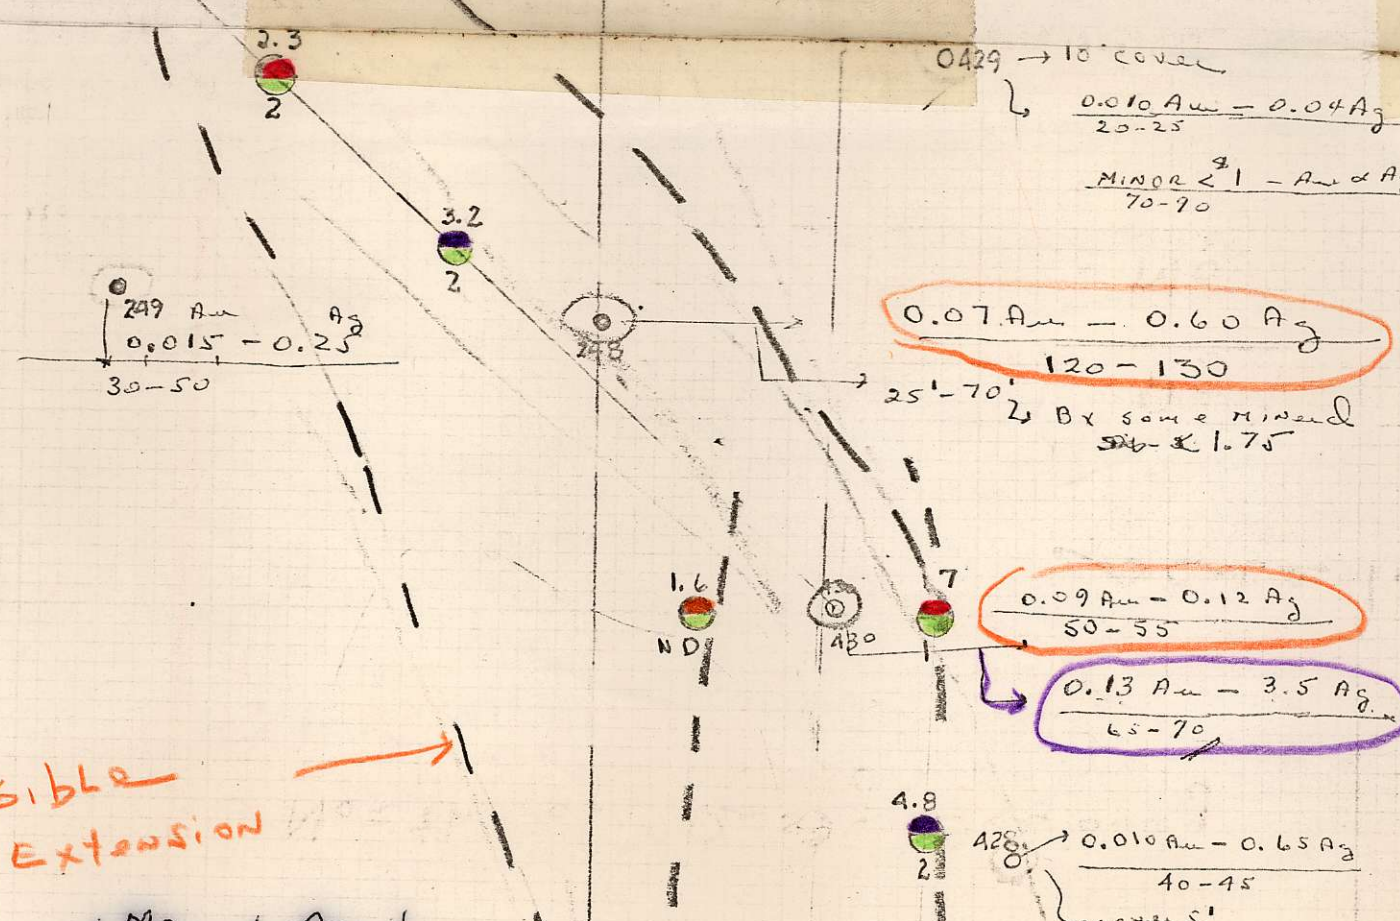 2.3
2
0429 → 10' cover
0.010 Au - 0.04 Ag
20-25
MINOR < 1 - Au & A
70-90
3.2
2
249 Au Ag
0.015 - 0.25
30-50
248
0.07 Au - 0.60 Ag
120-130
25'-70'
Bx some Mineral
1.75
1.6
ND
430
7
0.09 Au - 0.12 Ag
50-55
0.13 Au - 3.5 Ag
65-70
sible
Extension
4.8
2
428
0.010 Au - 0.65 Ag
40-45